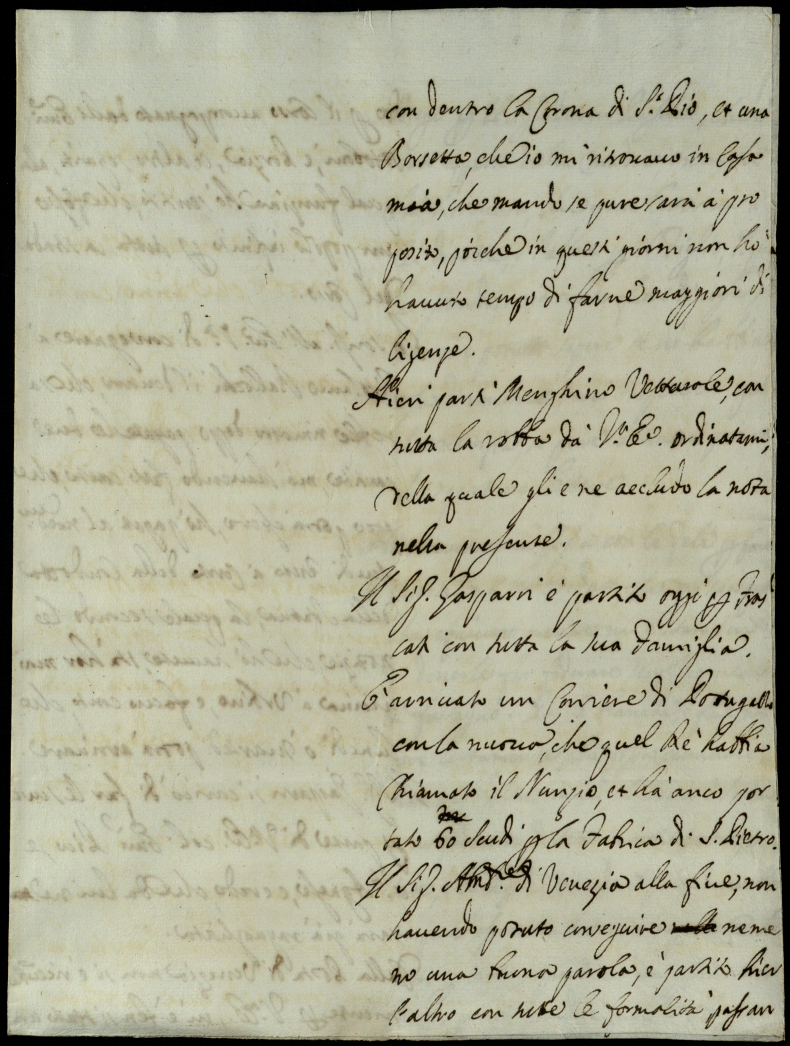 con dentro la Corona di S.t Pio, et una
Borsetta, che io mi ritrovavo in Casa
mia, che mando se pure sarà à pro
posito, poiche in questi giorni non hò
havuto tempo di farne maggiori di
ligenze.
Hieri partì Menghino Vetturale, con
tutta la robba dà V.ra E.za ordinatami,
della quale gli e ne accludo la nota
nella presente.
Il Sig.r Gasparri è partito oggi p Fras
cati con tutta la sua famiglia.
È arrivato un Corriere di Portugallo
con la nuova, che quel Rè habbia
chiamato il Nunzio, et hà anco por
tato 60 Scudi p la Fabrica di S. Pietro.
Il Sig.r Amb.re di Venezia alla fine, non
havendo potuto conseguire neme
no una buona parola, è partito hier
l'altro con tutte le formalità passan